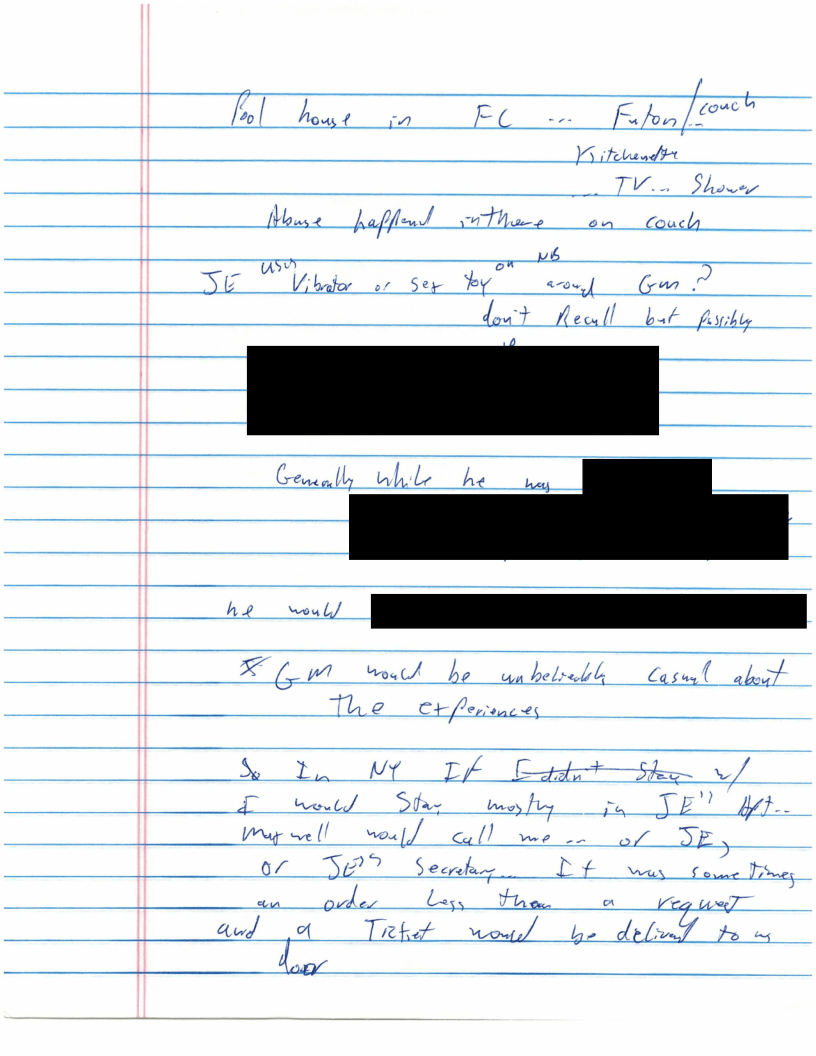 Pool house in FC ... Futon/couch
Kitchenette
... TV... Shower
Abuse happend in there on couch
JE using Vibrator or sex toy on NB around Gm?
don't Recall but possibly
Generally while he was
he would
* GM would be unbelievably casual about
the experiences
So In NY If I didn't stay w/
I would Stay mostly in JE's Apt..
Maxwell would call me -- or JE,
or JE's Secretary... It was sometimes
an order less than a request
and a Ticket would be delivered to
door